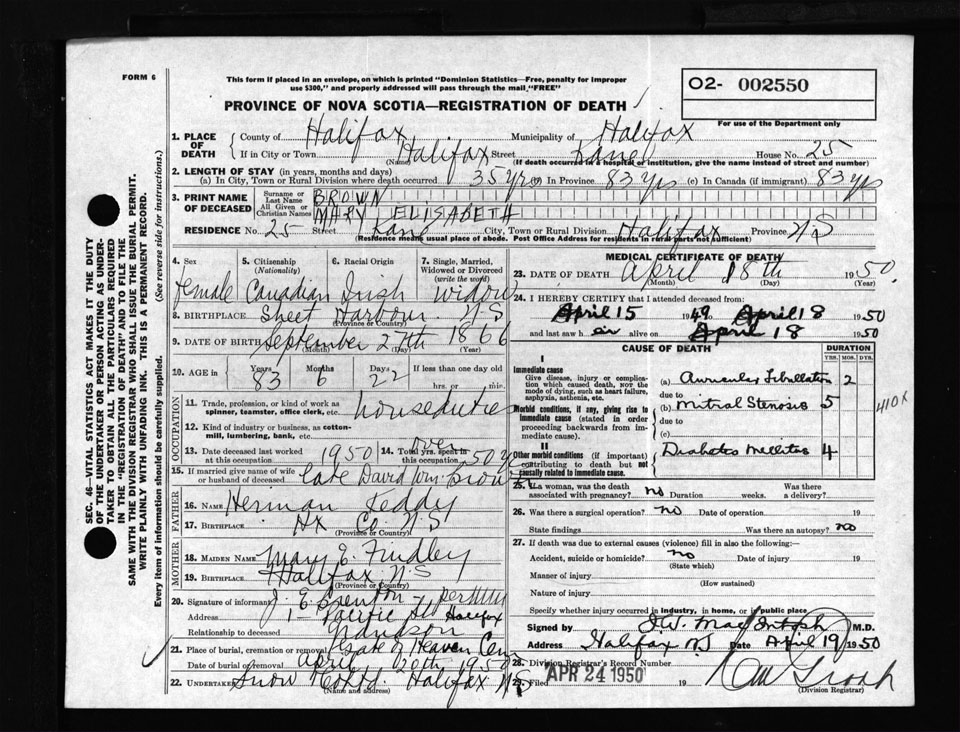 FORM 6
This form if placed in an envelope, on which is printed "Dominion Statistics—Free, penalty for improper
use $300," and properly addressed will pass through the mail "FREE"
O2- 002550
For use of the Department only
PROVINCE OF NOVA SCOTIA—REGISTRATION OF DEATH
1. PLACE OF DEATH
County of Halifax Municipality of Halifax
If in City or Town Halifax Street Kane House No. 25
(Name) (If death occurred in a hospital or institution, give the name instead of street and number)
2. LENGTH OF STAY (in years, months and days)
(a) In City, Town or Rural Division where death occurred 35 yrs (b) In Province 83 yrs (c) In Canada (if immigrant) 83 yrs
3. PRINT NAME OF DECEASED
Surname or Last Name BROWN
All Given or Christian Names MARY ELISABETH
RESIDENCE No. 25 Street Kane City, Town or Rural Division Halifax Province N S
(Residence means usual place of abode. Post Office Address for residents in rural parts not sufficient)
4. Sex 5. Citizenship (Nationality) 6. Racial Origin 7. Single, Married, Widowed or Divorced (write the word)
female Canadian Irish widow
8. BIRTHPLACE Sheet Harbour N S
(Province or Country)
9. DATE OF BIRTH September 27th 1866
(Month) (Day) (Year)
10. AGE in Years 83 Months 6 Days 22 If less than one day old
hrs. or min.
OCCUPATION
11. Trade, profession, or kind of work as
spinner, teamster, office clerk, etc. houseduties
12. Kind of industry or business, as cotton-
mill, lumbering, bank, etc.
13. Date deceased last worked at this occupation 1950 14. Total yrs. spent in this occupation over 50 y
15. If married give name of wife or husband of deceased Late David Wm. Brown
FATHER
16. NAME Herman
17. BIRTHPLACE Hx Co. N S
MOTHER
18. MAIDEN NAME Mary E. Findley
19. BIRTHPLACE Halifax N S
(Province or Country)
20. Signature of informant J. E.
Address 1 Pacific Halifax
Relationship to deceased Grandson
21. Place of burial, cremation or removal Gate of Heaven Cem
Date of burial, cremation April 20th 1950
22. Undertaker Snow Co Ltd. Halifax N S
(Name and address)
MEDICAL CERTIFICATE OF DEATH
23. DATE OF DEATH April 18th 1950
(Month) (Day) (Year)
24. I HEREBY CERTIFY that I attended deceased from:
April 15 1949 to April 18 1950
and last saw h er alive on April 18 1950
CAUSE OF DEATH DURATION
YRS. MOS. DYS.
I
Immediate cause
Give disease, injury or complica-
tion which caused death, NOT the
mode of dying, such as heart failure,
asphyxia, asthenia, etc.
(a) Auricular Fibrillation 2
due to
Morbid conditions, if any, giving rise to
immediate cause (stated in order
proceeding backwards from im-
mediate cause).
(b) Mitral Stenosis 5
due to
(c)
410X
II
Other morbid conditions (if important)
contributing to death but not
causally related to immediate cause.
Diabetes Mellitus 4
25. If a woman, was the death
associated with pregnancy? no Duration weeks. Was there a delivery?
26. Was there a surgical operation? no Date of operation 19
State findings Was there an autopsy? no
27. If death was due to external causes (violence) fill in also the following:
Accident, suicide or homicide? no Date of injury 19
(State which)
Manner of injury
(How sustained)
Nature of injury
Specify whether injury occurred in industry, in home, or in public place
Signed by MacIntosh M.D.
Address Halifax N.S Date April 19 1950
28. Division Registrar's Record Number
29. Filed APR 24 1950 19
(Division Registrar)
SEC. 46—VITAL STATISTICS ACT MAKES IT THE DUTY
OF THE UNDERTAKER OR PERSON ACTING AS UNDER-
TAKER TO OBTAIN ALL THE PARTICULARS REQUIRED
IN THE "REGISTRATION OF DEATH" AND TO FILE THE
SAME WITH THE DIVISION REGISTRAR WHO SHALL ISSUE THE BURIAL PERMIT.
WRITE PLAINLY WITH UNFADING INK. THIS IS A PERMANENT RECORD.
Every item of information should be carefully supplied. (See reverse side for instructions.)